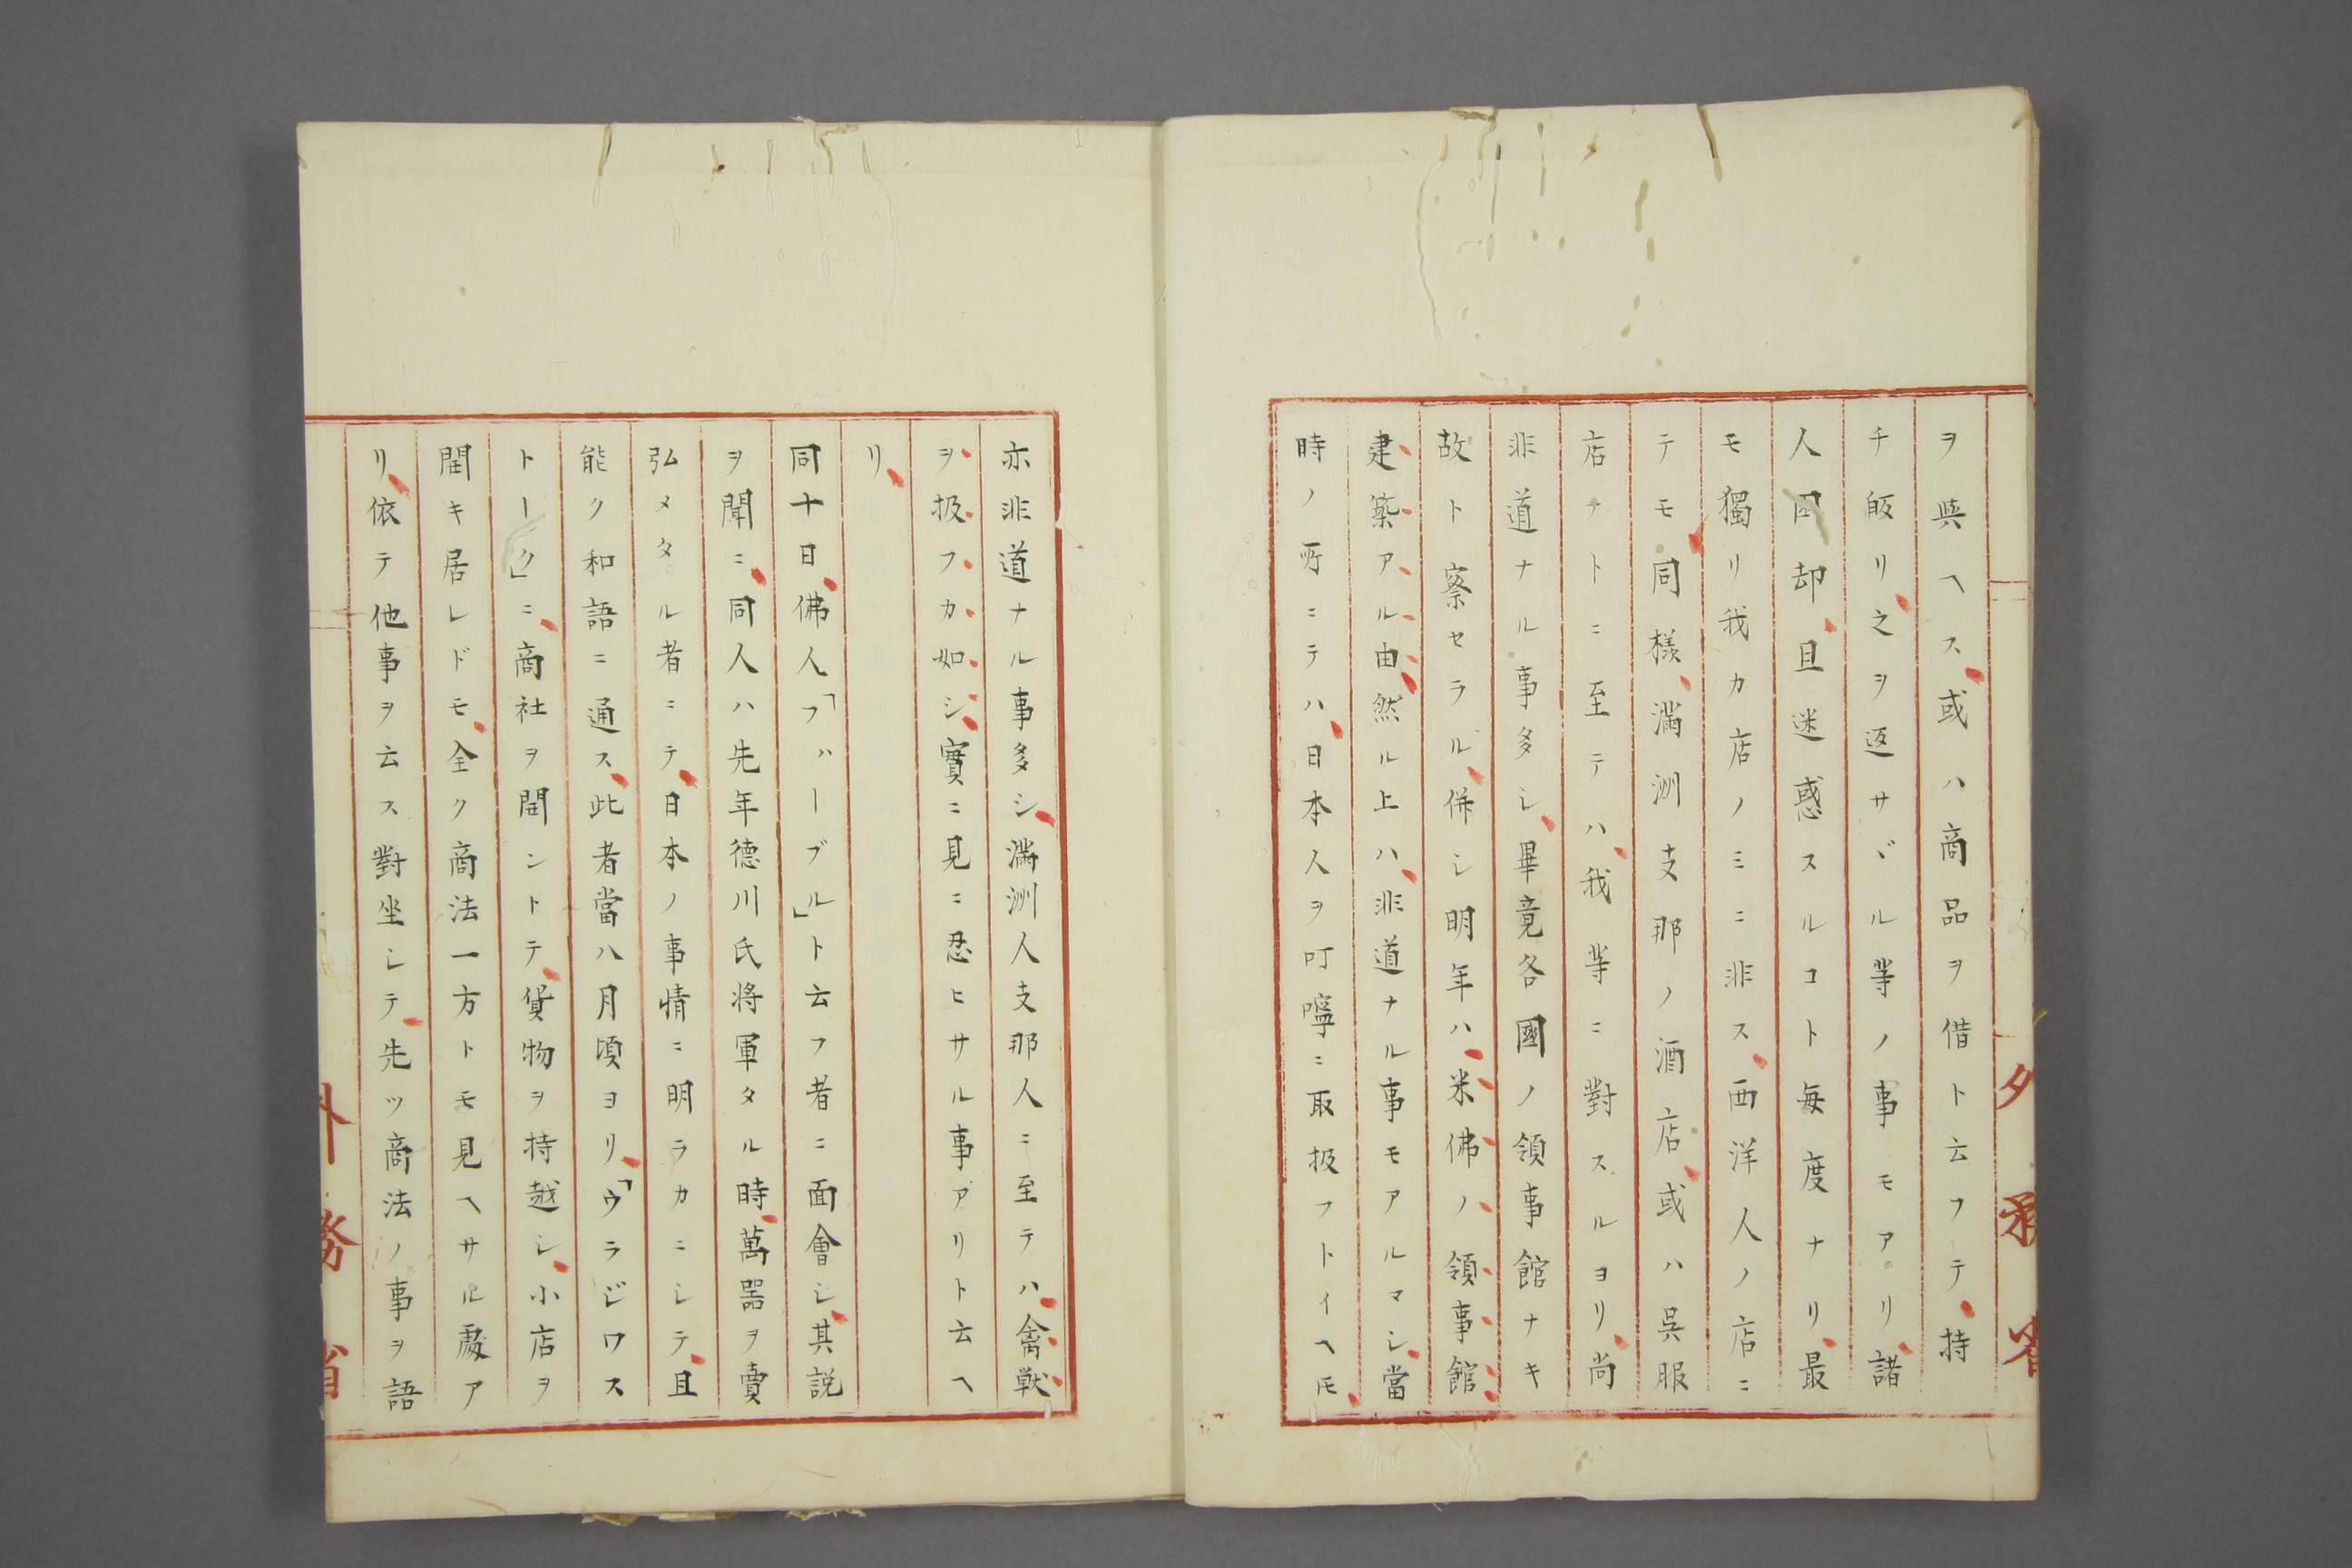 ヲ與ヘス、或ハ商品ヲ借ト云フテ、持
チ皈リ、之ヲ返サヾル等ノ事モアリ、諸
人困却、且迷惑スルコト毎度ナリ、最
モ獨リ我カ店ノミニ非ス、西洋人ノ店ニ
テモ、同様、滿洲支那ノ酒店、或ハ呉服
店ナトニ至テハ、我等ニ對スルヨリ、尚
非道ナル事多シ、畢竟各國ノ領事館ナキ
故ト察セラル、併シ明年ハ、米佛ノ領事館
建築アル由、然ル上ハ、非道ナル事モアルマシ、當
時ノ所ニテハ、日本人ヲ叮嚀ニ取扱フトイヘ𪜈、
亦非道ナル事多シ、滿洲人支那人ニ至テハ、禽獣
ヲ扱フカ如シ、實ニ見ニ忍ヒサル事アリト云ヘ
リ、
同十日、佛人「フハーブル」ト云フ者ニ面會シ、其説
ヲ聞ニ、同人ハ先年徳川氏将軍タル時、萬噐ヲ賣
弘メタル者ニテ、日本ノ事情ニ明ラカニシテ、且
能ク和語ニ通ス、此者當八月頃ヨリ、「ウラジワス
トーク」ニ、商社ヲ開ントテ、貨物ヲ持越シ、小店ヲ
開キ居レドモ、全ク商法一方トモ見ヘサル處ア
リ、依テ他事ヲ云ス對坐シテ、先ツ商法ノ事ヲ語
外務省